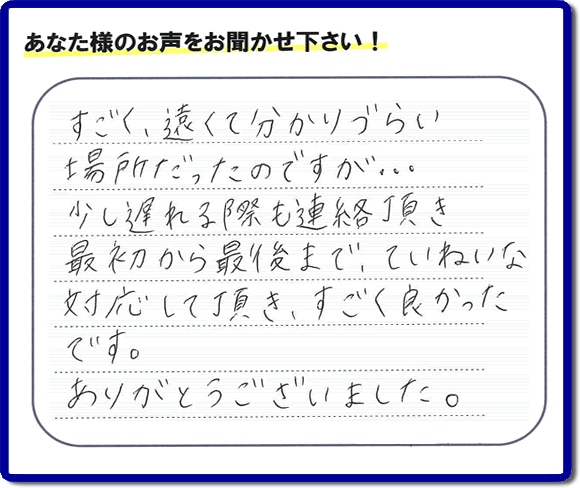 あなた様のお声をお聞かせ下さい！
すごく、遠くて分かりづらい
場所だったのですが…
少し遅れる際も連絡頂き
最初から最後まで、ていねいな
対応して頂き、すごく良かった
です。
ありがとうございました。